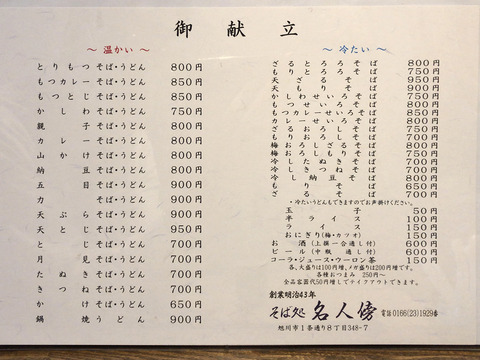 御献立
～ 温かい ～
とりもつそば・うどん 800円
もつカレーそば・うどん 850円
もつとじそば・うどん 850円
かしわそば・うどん 750円
親子そば・うどん 800円
カレーそば・うどん 800円
山かけそば・うどん 800円
納豆そば・うどん 850円
五目そば・うどん 900円
力そば・うどん 900円
天ぷらそば・うどん 900円
天とじそば・うどん 950円
とじそば・うどん 700円
月見そば・うどん 700円
たぬきそば・うどん 700円
きつねそば・うどん 700円
かけそば・うどん 650円
鍋焼うどん 900円
～ 冷たい ～
ざるとろろそば 800円
もりとろろそば 750円
天ざるそば 950円
天もりそば 900円
かしわせいろそば 750円
もつせいろそば 800円
もつカレーせいろそば 850円
カレーせいろそば 800円
ざるおろしそば 750円
もりおろしそば 700円
梅おろしざるそば 800円
梅おろしもりそば 750円
冷したぬきそば 750円
冷しきつねそば 750円
冷し納豆そば 850円
もりそば 650円
ざるそば 700円
・冷たいうどんもできますのでお声掛けください。
玉子 50円
半ライス 100円
ライス 150円
おにぎり(梅・カツオ) 150円
お酒(上撰一合通し付) 600円
ビール(中瓶 通し付) 600円
コーラ・ジュース・ウーロン茶 150円
各、大盛りは100円増、メガ盛りは200円増です。
各種おつまみ 250円～
全品容器代50円増しでテイクアウトできます。
創業明治43年
そば処 名人傍 電話0166(23)1929番
旭川市1条通り8丁目348-7